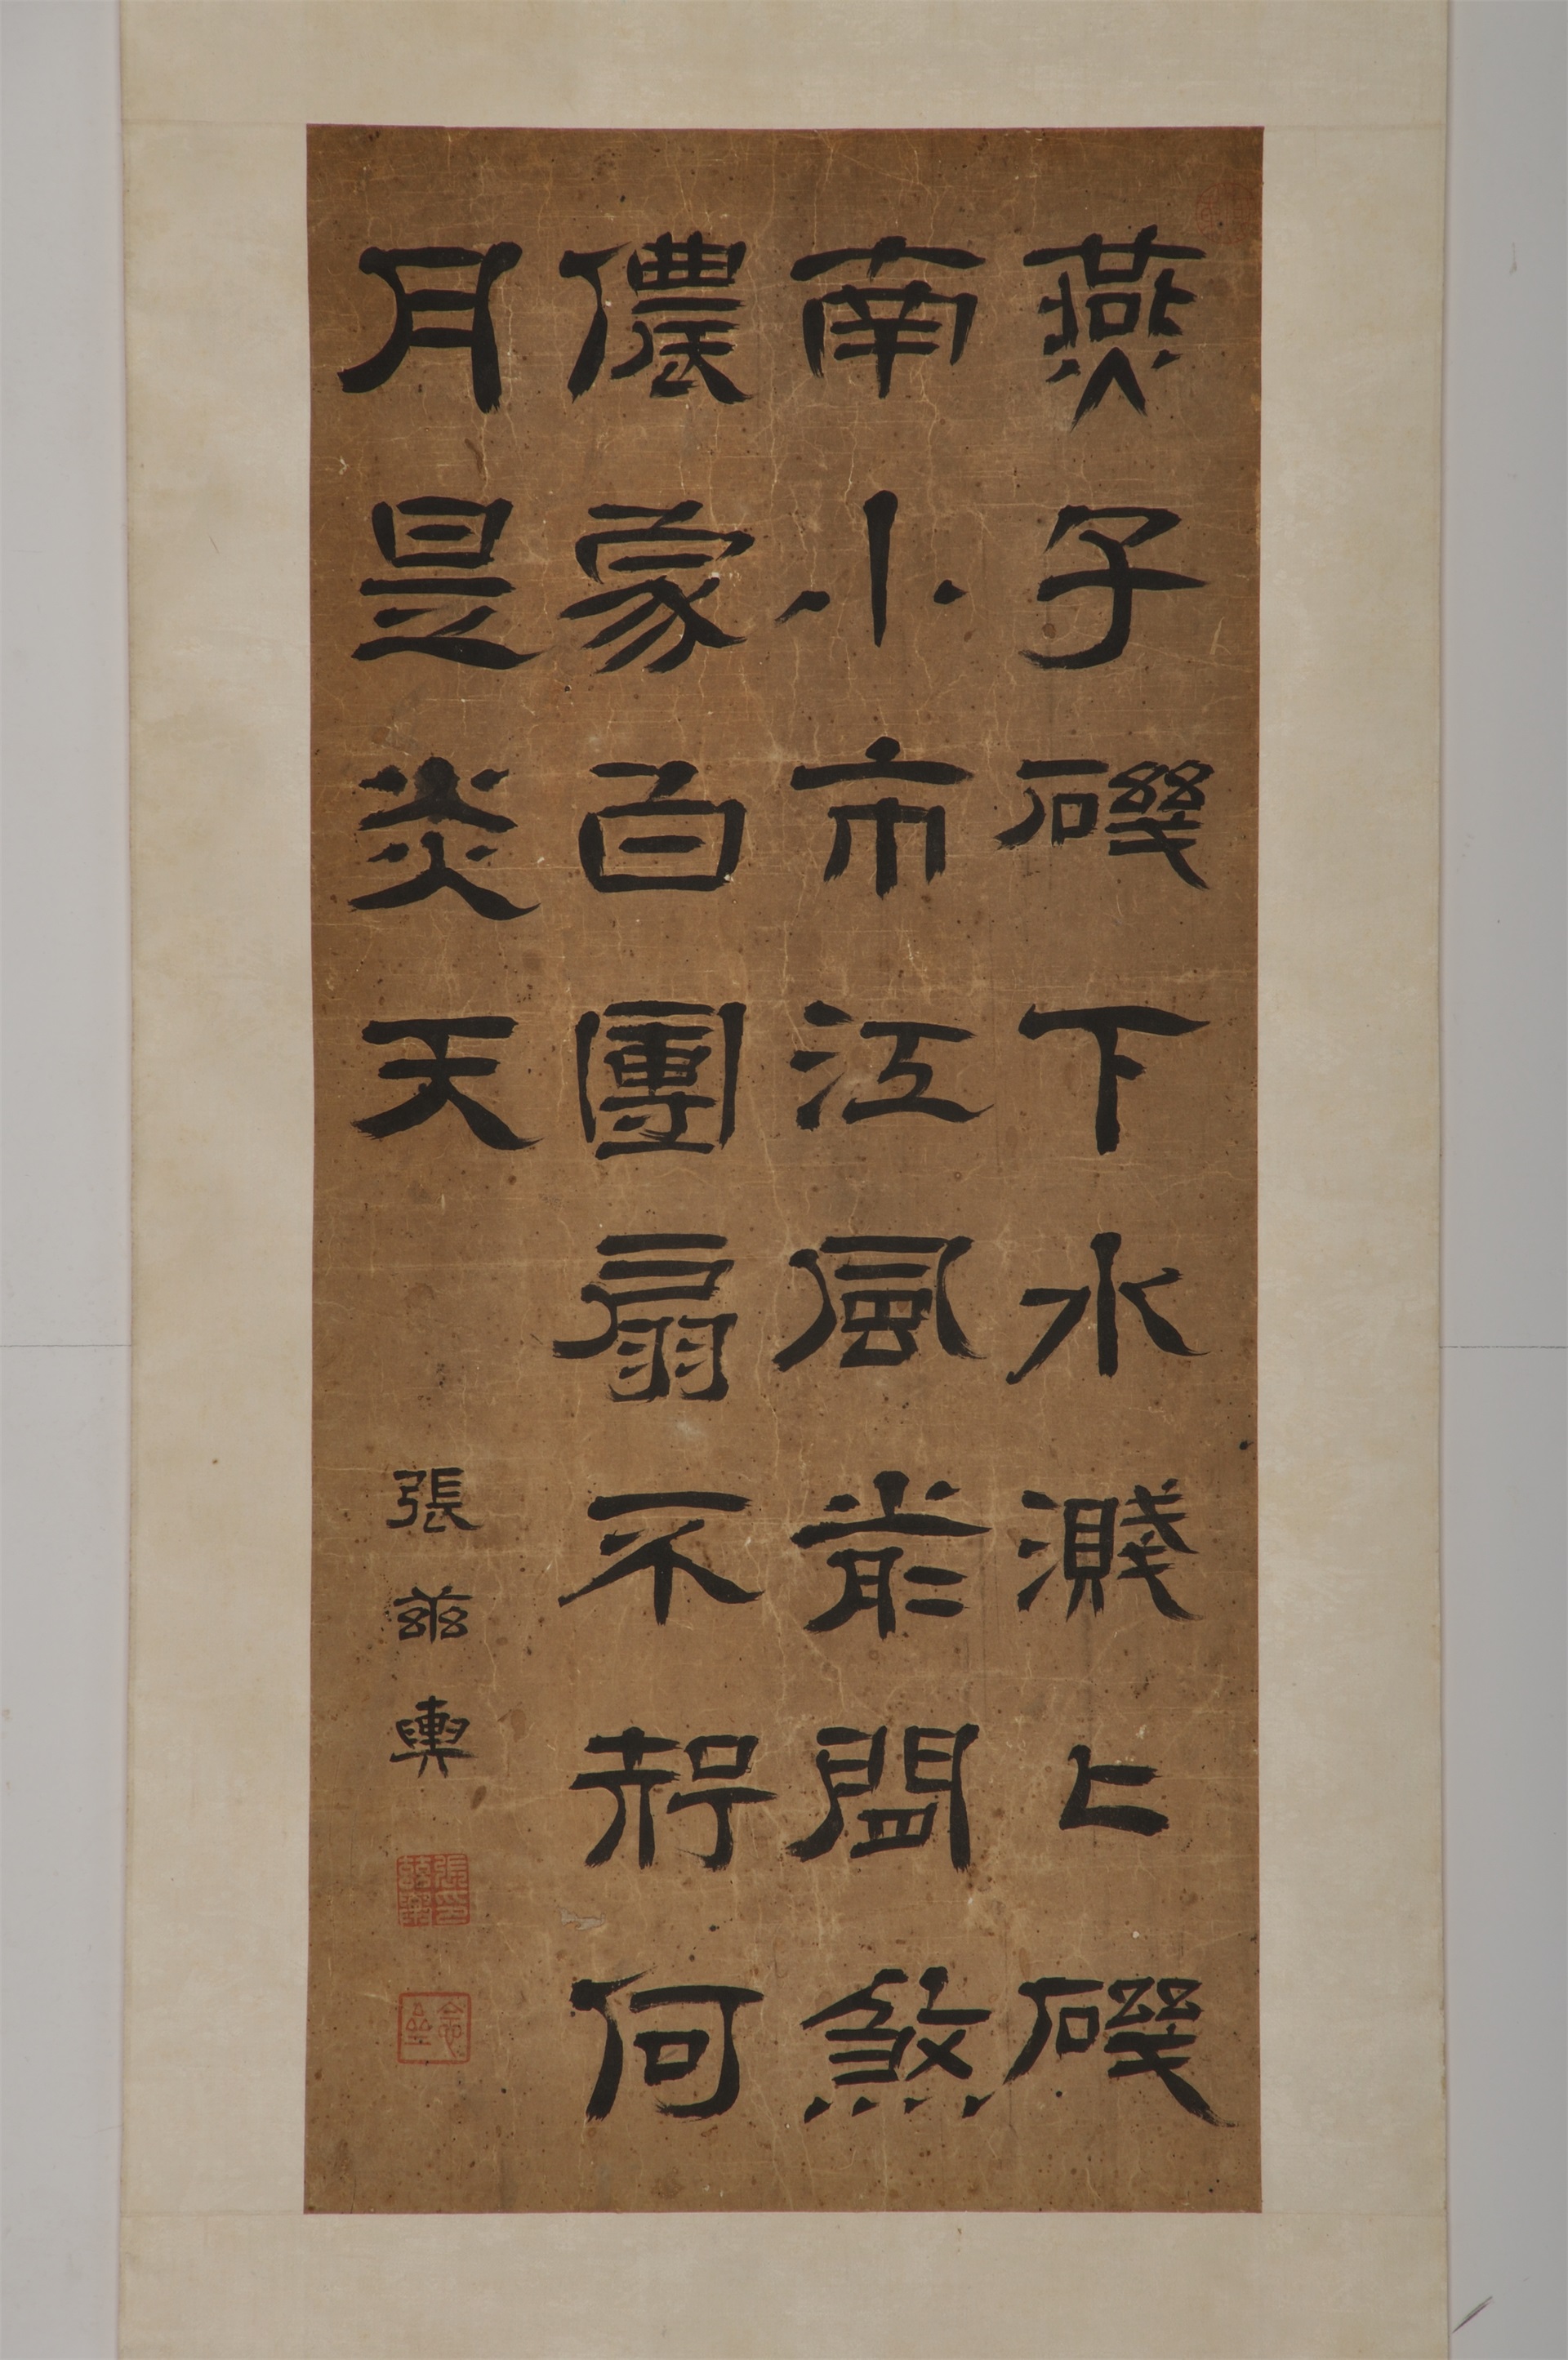 燕子磯下水濺〻磯
南小市江風前閒煞
儂家白團扇不知何
月是炎天
張茲輿